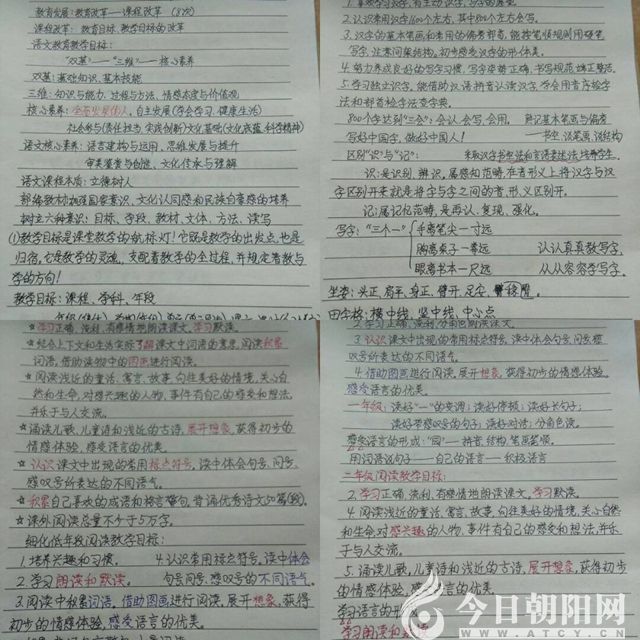 教育发展:教育改革——课程改革(8次)
课程改革:教育目标、教学目标的改革
语文教育教学目标:
"双基"——"三维"——核心素养
双基:基础知识、基本技能
三维:知识与能力、过程与方法、情感态度与价值观
核心素养:全面发展的人、自主发展(学会学习、健康生活)
社会参与(责任担当、实践创新)文化基础(文化底蕴、科学精神)
语文核心素养:语言建构与运用、思维发展与提升
审美鉴赏与创造、文化传承与理解
语文课程本质:立德树人
部编教材加强国家意识、文化认同感和民族自豪感的培养
树立六种意识:目标、学段、教材、文体、方法、读写
①教学目标是课堂教学的导航灯!它既是教学的出发点,也是
归宿,它是教学的灵魂,支配着教学的全过程,并规定着教与
学的方向!
教学目标:课程、学科、年段
2.认识常用汉字1600个左右,其中800个左右会写。
3.汉字的基本笔画和常用的偏旁部首,能按笔顺规则用硬笔
写字,注意间架结构。初步感受汉字的形体美。
4.努力养成良好的写字习惯,写字姿势正确,书写规范、端正、整洁。
5.学习独立识字,能借助汉语拼音认读汉字,学会用音序检字
法和部首检字法查字典。
800个字达到"三会":会认、会写、会用,熟记基本笔画与偏旁
写好中国字,做好中国人!——书空 谈笔画 说结构
区别"识"与"记":
识:是识别、辨识,属感知范畴,在音形义上将汉字与汉
字区别开来就是将字与字之间的音、形、义区别开。
记:属记忆范畴,是再认、复现、强化。
写字:"三个一" 手离笔尖一寸远
胸离桌子一拳远 认认真真数写字,
眼离书本一尺远 从从容容学写字。
坐姿:头正、肩平、身正、臂开、足安
田字格:横中线、竖中线、中心点
☆学习正确、流利、有感情地朗读课文,学习默读。
☆结合上下文和生活实际了解课文中词语的意思,阅读积累
词语,借助读物中的图画进行阅读。
☆阅读浅近的童话、寓言、故事,向往美好的情境,关心自
然和生命,对感兴趣的人物、事件有自己的感受和想法,
并乐于与人交流。
☆诵读儿歌、儿童诗和浅近的古诗,展开想象,获得初步的
情感体验,感受语言的优美。
☆认识课文中出现的常用标点符号,读中体会句号、问号、
感叹号所表达的不同语气。
☆积累自己喜欢的成语和格言警句,背诵优秀诗文50篇(段)。
☆课外阅读总量不少于5万字。
细化低年段阅读教学目标:
1.培养兴趣和习惯。 4.认识常用标点符号。读中体会
2.学习朗读和默读。 句号、问号、感叹号的不同语气。
3.阅读中积累词语,借助图画进行阅读,展开想象,获得
初步的情感体验,感受语言的优美。
2.学习正确、流利、分角色朗读课文。
3.认识课文中出现的常用标点符号,读中体会句号、问号、感
叹号所表达的不同语气。
4.借助图画进行阅读,展开想象,获得初步的情感体验,
感受语言的优美。
一年级:读好"一"的变调;读好停顿;读好长句子;
读好带感叹号的句子;读好对话;分角色读。
感受语言的形成:"园"——拼音、结构、笔画笔顺。
用词语说句子——自己的语言——积极语言
二年级阅读教学目标:
2.学习正确、流利、有感情地朗读课文,学习默读。
4.阅读浅近的童话、寓言、故事,向往美好的情境,关心自然
和生命,对感兴趣的人物、事件有自己的感受和想法,并乐
于与人交流。
5.诵读儿歌、儿童诗和浅近的古诗,展开想象,获得初
步的情感体验,感受语言的优美。
学习语言的
学习朗读和
今日朝阳网
WWW.ATCY.CN